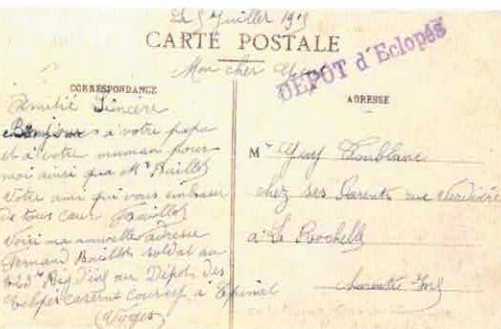 Le 5 Juillet 1915
CARTE POSTALE
Mon cher
DEPOT d'Eclopés
CORRESPONDANCE
ADRESSE
Amitié Sincere
Bonjour à votre papa
et à votre maman pour
moi ainsi qua Mr Baillot
Votre ami qui vous embrasse
de tous cœur Baillot
Voici ma nouvelle adresse
Fernand Baillot soldat au
Dépot des
caserne Courcy à Epinal
(Vosges)
Mr Guy
chez ses Parents rue
à La Rochelle
Charente Inf